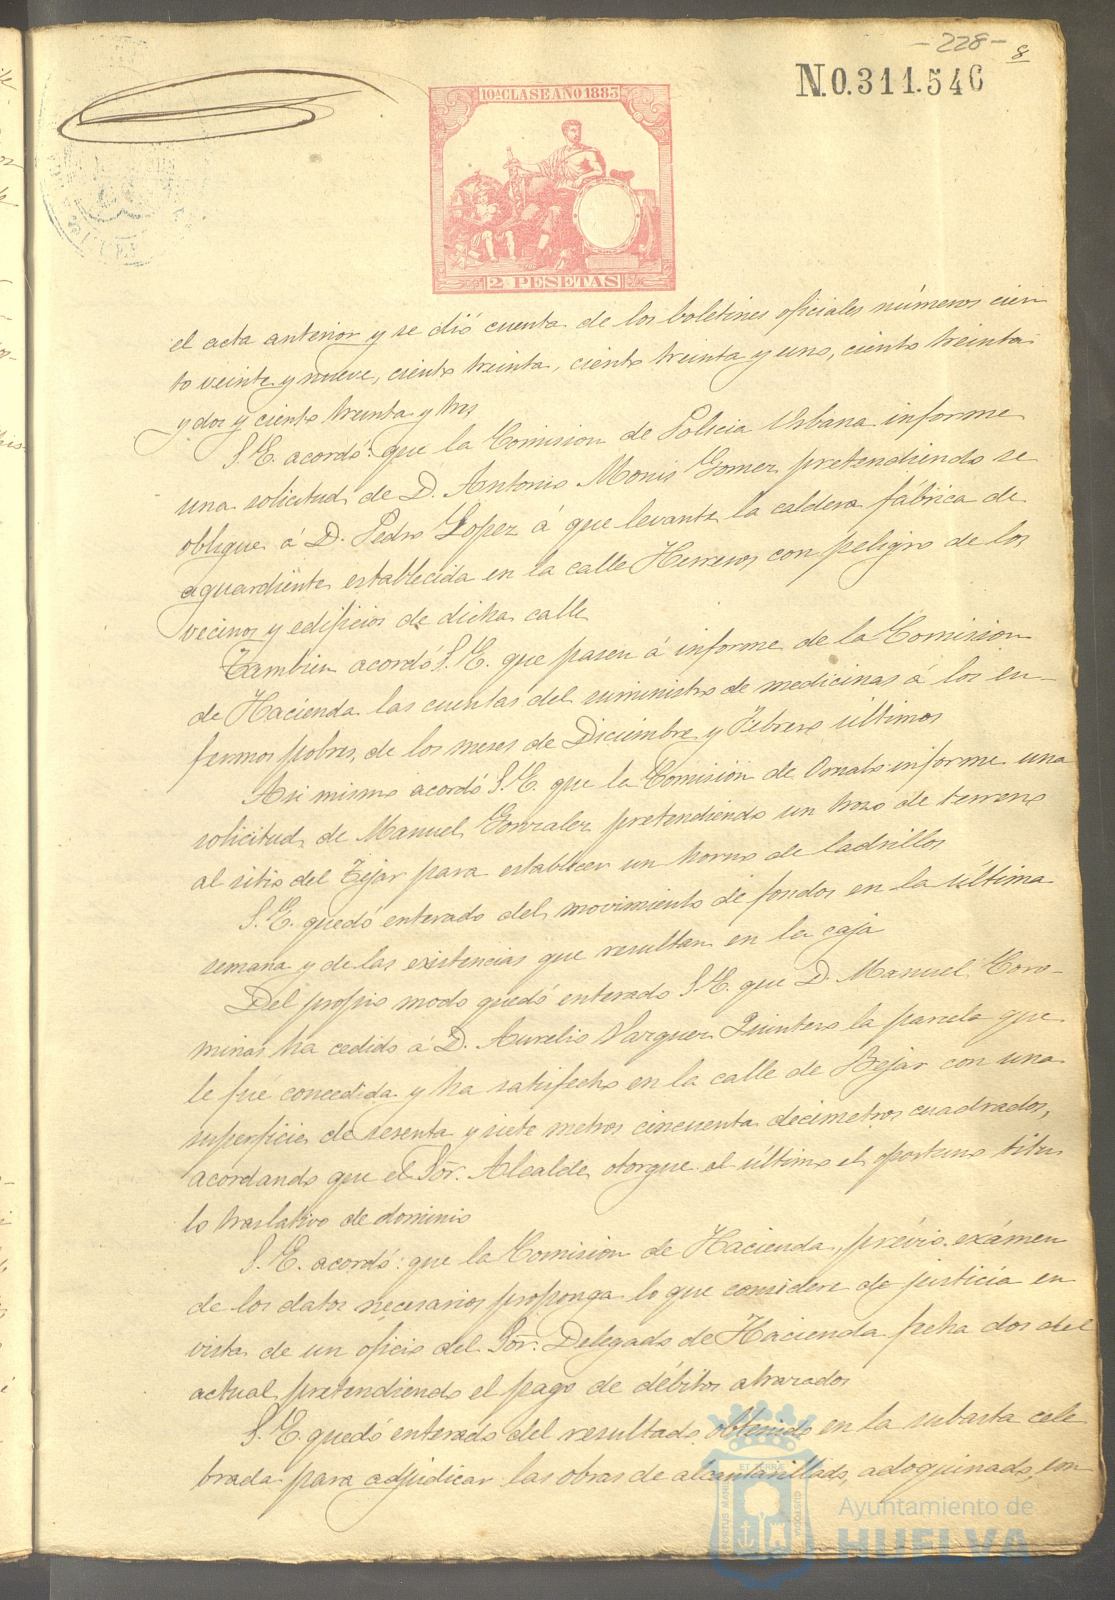 -228-
8
N.0.311.546
10ª CLASE AÑO 1883
2 PESETAS
el acta anterior y se dió cuenta de los boletines oficiales números cien
to veinte y nueve, ciento treinta, ciento treinta y uno, ciento treinta
y dos y ciento treinta y tres
S.E. acordó: que la Comision de Policia Urbana informe
una solicitud de D. Antonio Monis Gomez pretendiendo se
obligue á D. Pedro Lopez á que levante la caldera fábrica de
aguardiente establecida en la calle Herreros con peligro de los
vecinos y edificios de dicha calle
Tambien acordó S.E. que pasen á informe de la Comision
de Hacienda las cuentas del suministro de medicinas á los en-
fermos pobres, de los meses de Diciembre y Febrero últimos
Asi mismo acordó S.E. que la Comision de Ornato informe una
solicitud de Manuel Gonzalez pretendiendo un trozo de terreno
al sitio del Tejar para establecer un horno de ladrillos
S.E. quedó enterado del movimiento de fondos en la última
semana y de las existencias que resultan en la caja
Del propio modo quedó enterado S.E. que D. Manuel Coro-
minas ha cedido á D. Aurelio Vazquez Quintero la parcela que
le fué concedida y ha satisfecho en la calle de Bejar con una
superficie de sesenta y siete metros cincuenta decimetros cuadrados,
acordando que el Sor. Alcalde otorgue al último el oportuno titu
lo traslativo de dominio
S.E. acordó: que la Comision de Hacienda, prévio exámen
de los datos necesarios proponga lo que considere de justicia en
vista de un oficio del Sor. Delegado de Hacienda fecha dos del
actual pretendiendo el pago de débitos atrazados
S.E. quedó enterado del resultado obtenido en la subasta cele
brada para adjudicar las obras de alcantarillado, adoquinado, em
Ayuntamiento de
HUELVA